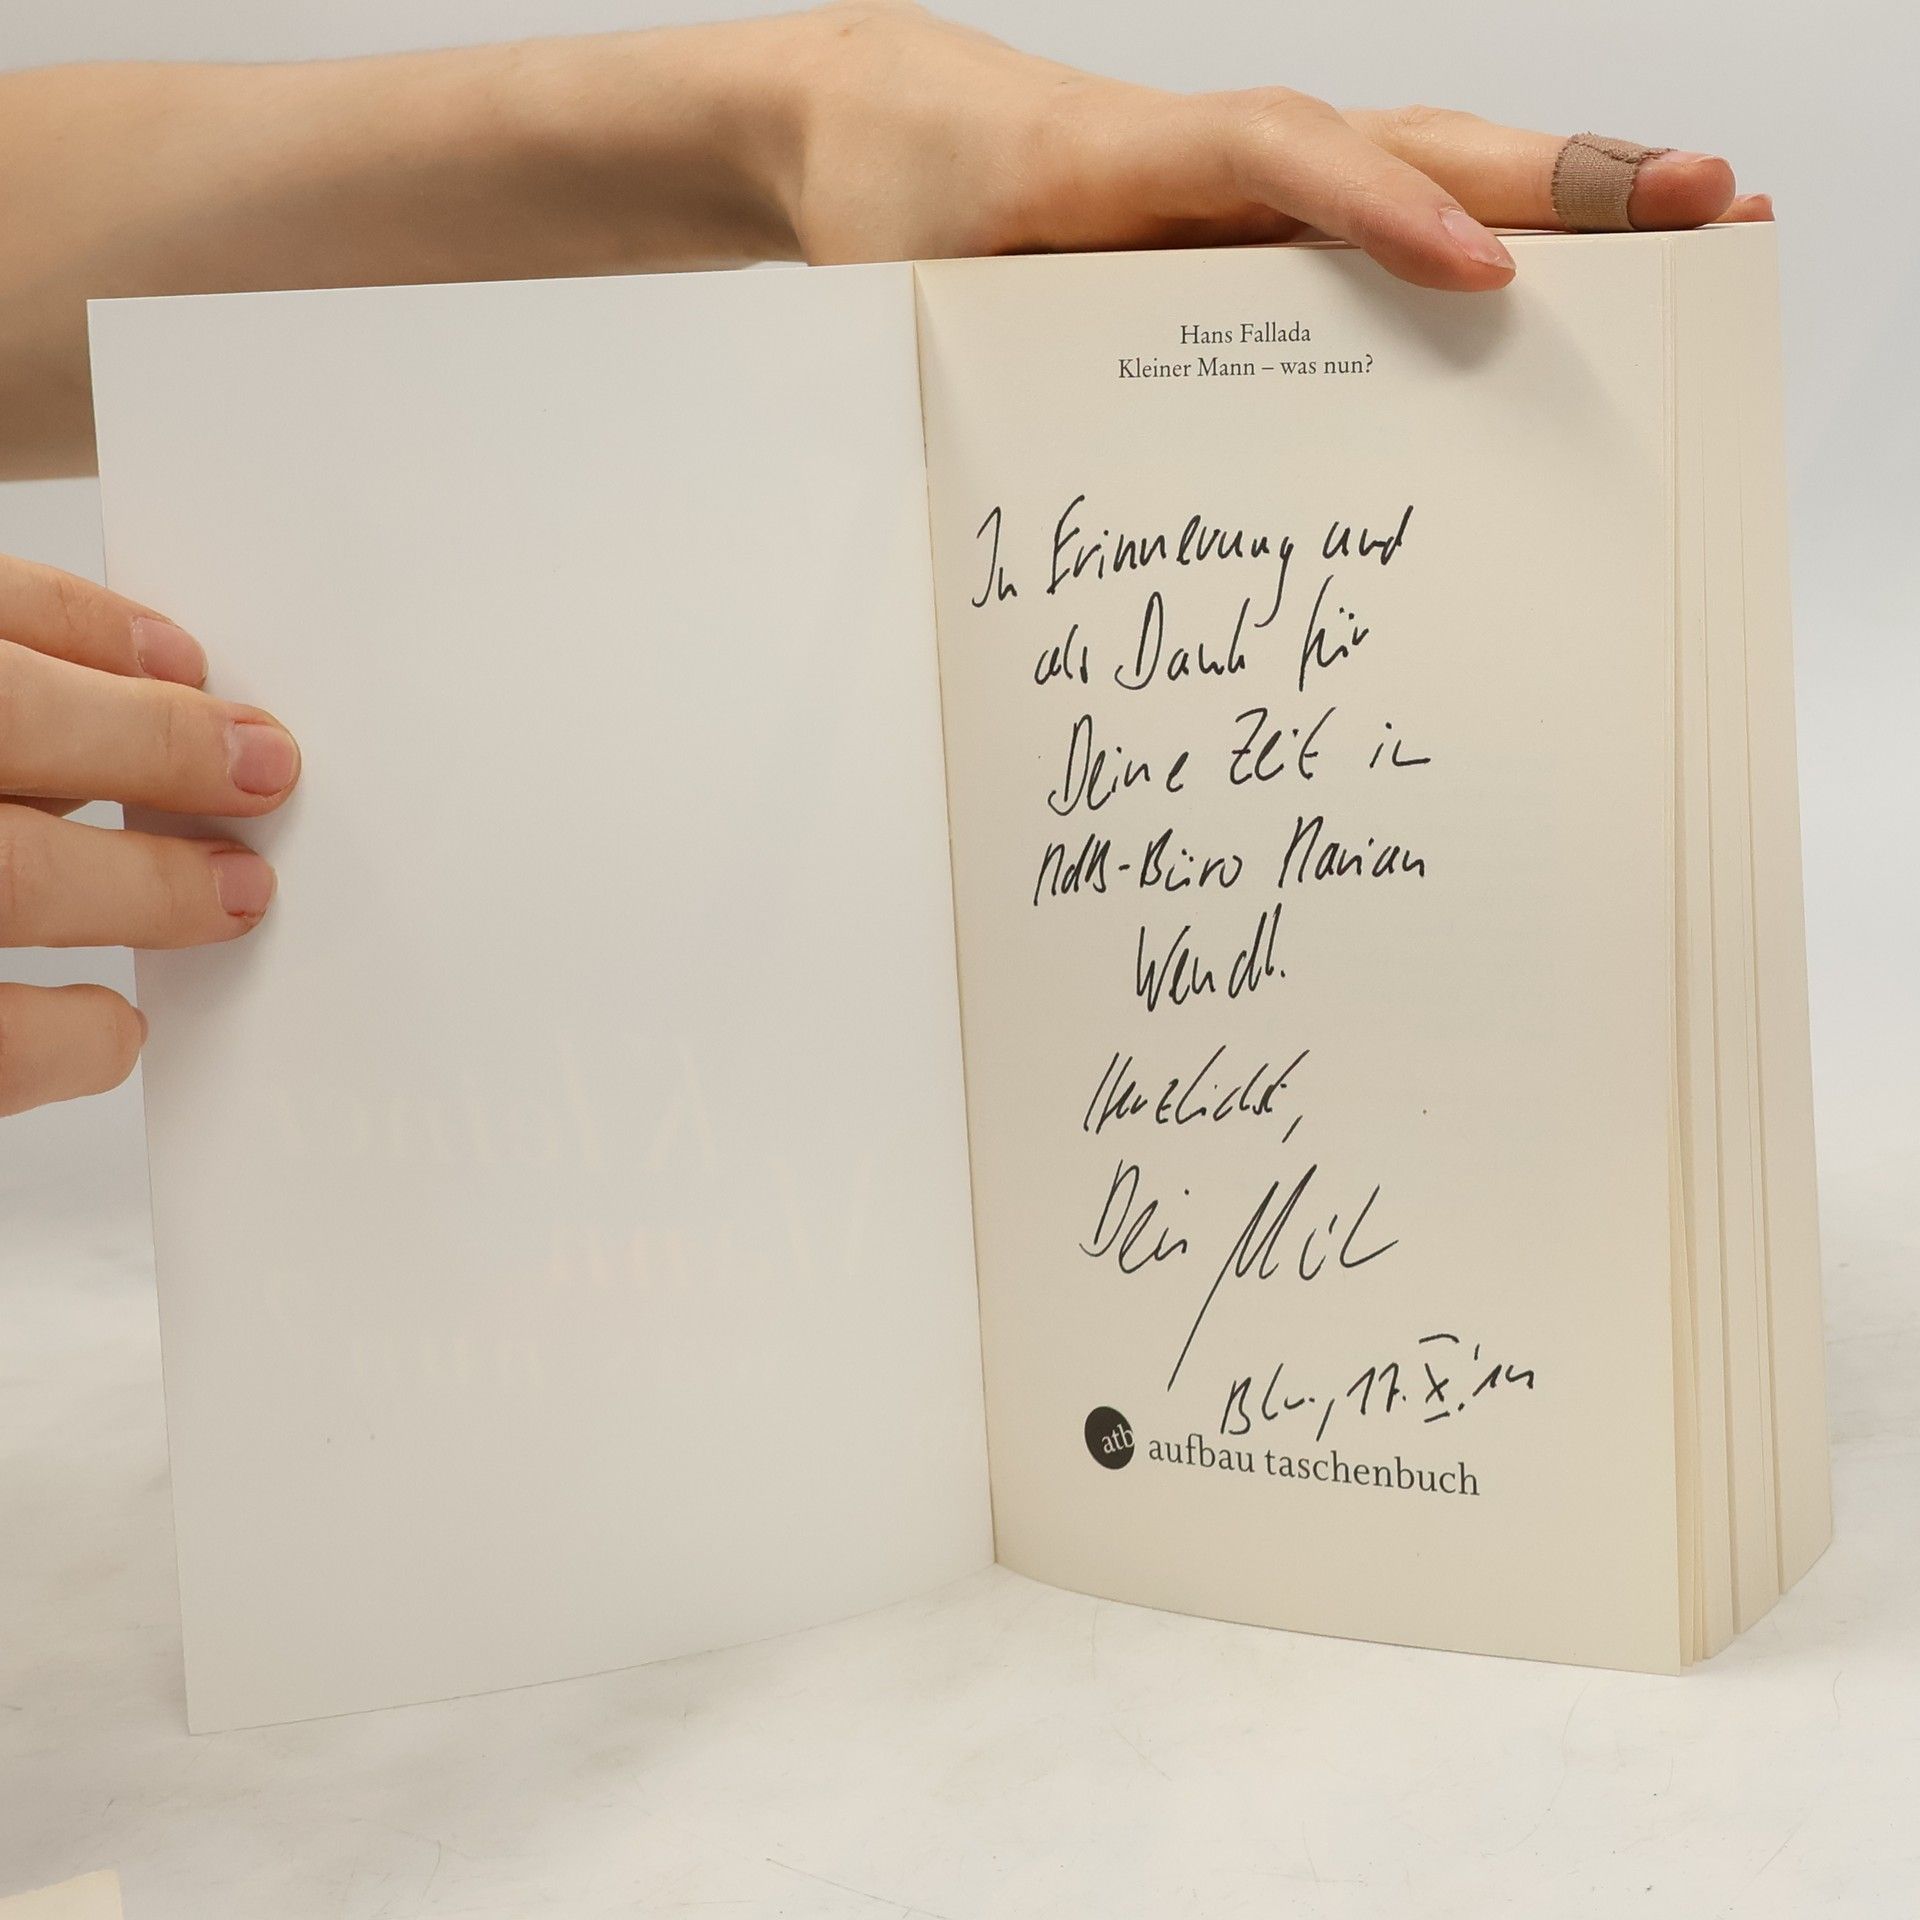 Hans Fallada
Kleiner Mann – was nun?
In Erinnerung und
als Dank für
Deine Zeit in
MdB-Büro Marian
Wendt.
Herzlichst,
Dein
Bln., 17. X. '14
atb aufbau taschenbuch